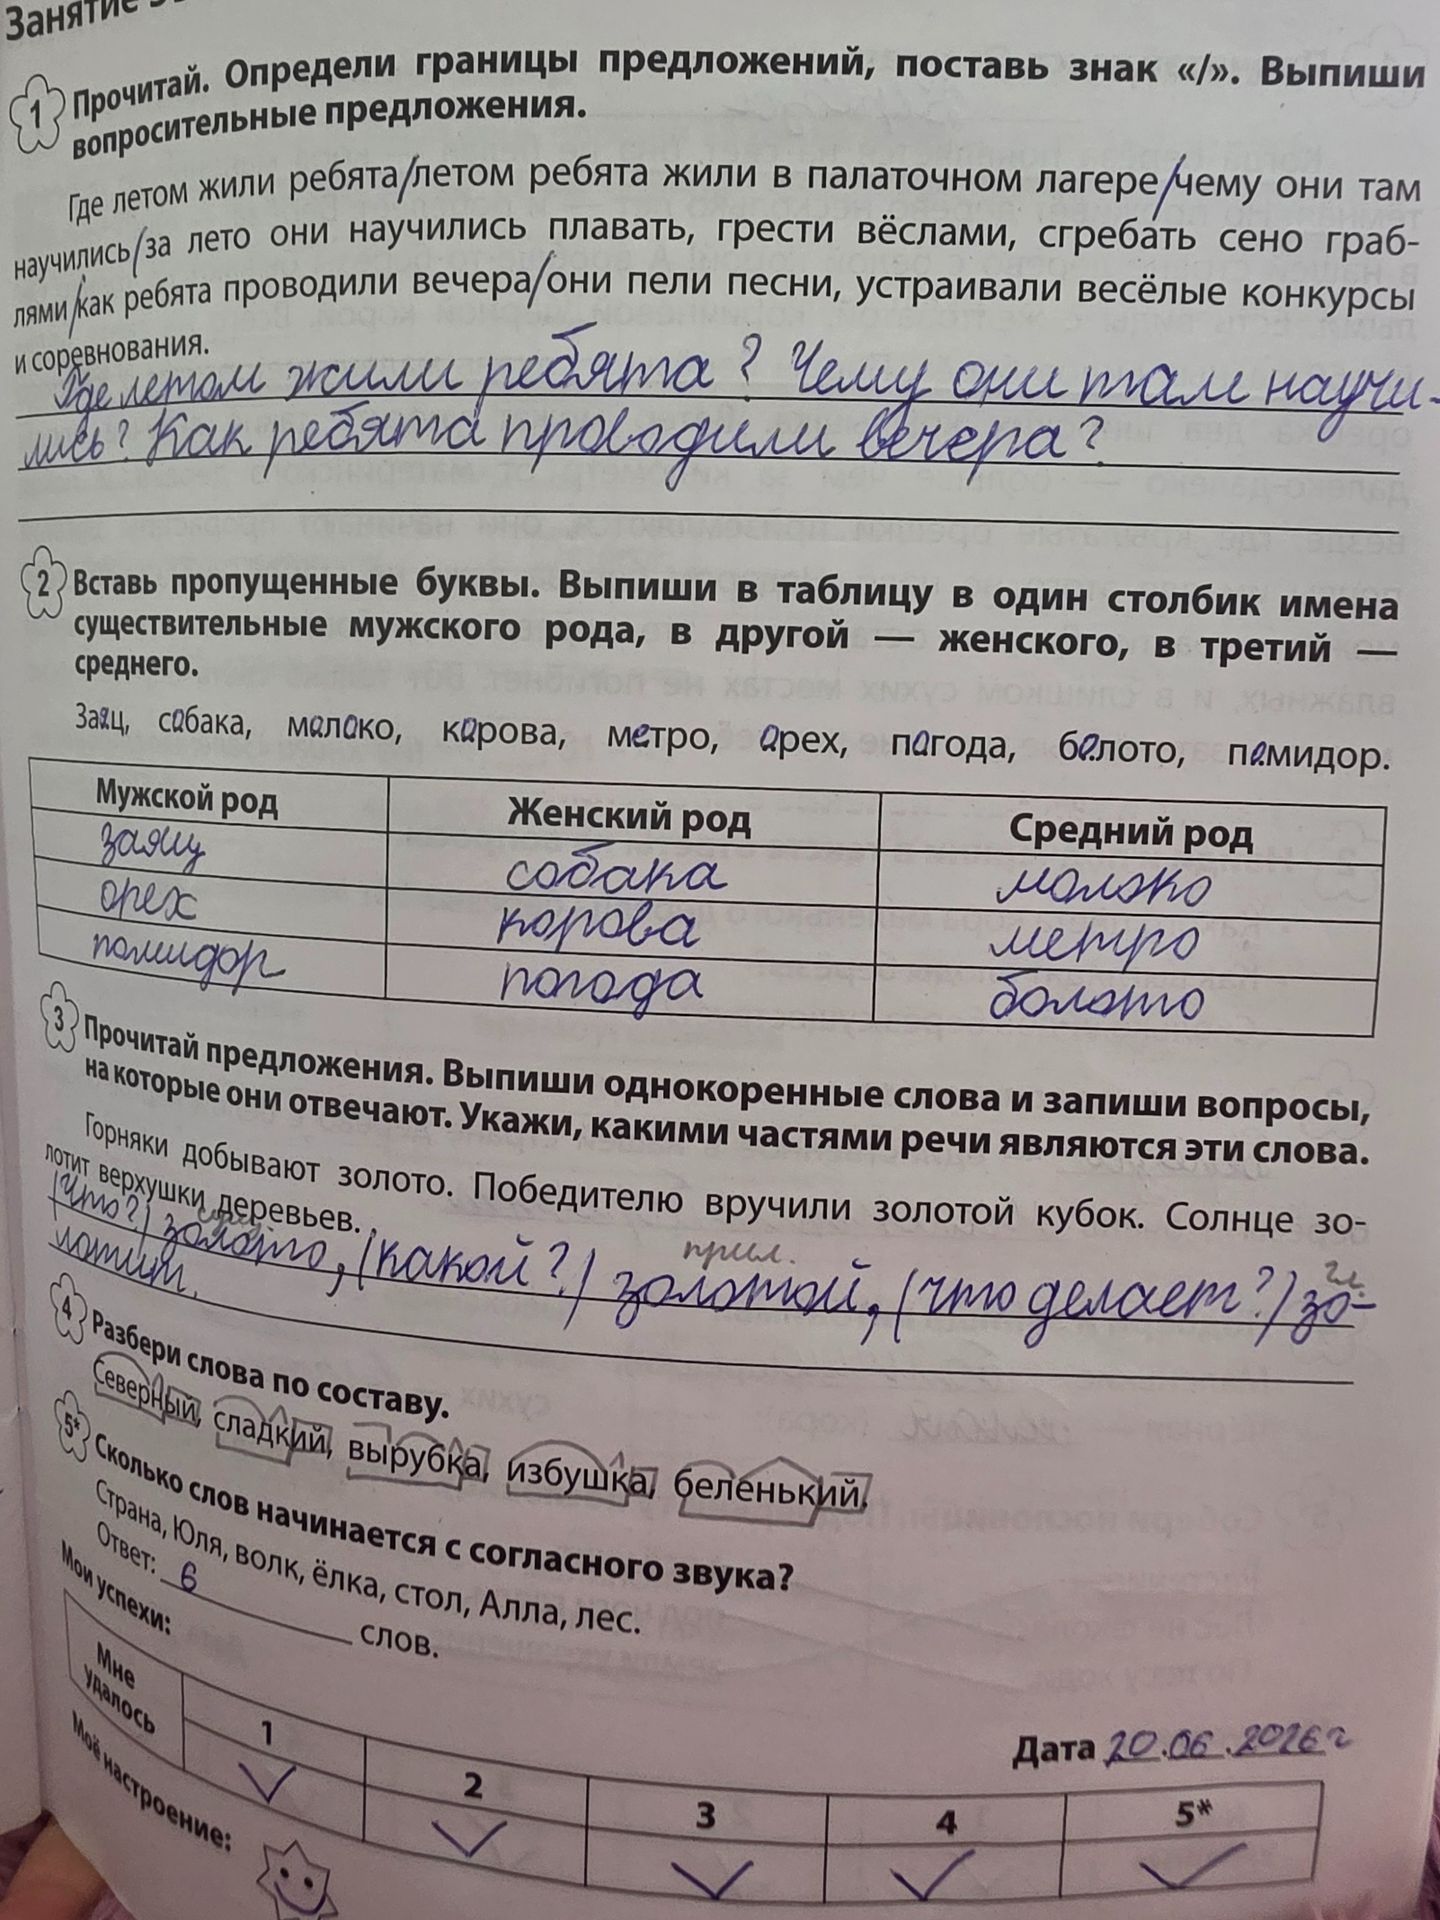 Занятие
1 Прочитай. Определи границы предложений, поставь знак «/». Выпиши
вопросительные предложения.
Где летом жили ребята/летом ребята жили в палаточном лагере/чему они там
научились/за лето они научились плавать, грести вёслами, сгребать сено граб-
лями/как ребята проводили вечера/они пели песни, устраивали весёлые конкурсы
и соревнования.
Где летом жили ребята? Чему они там научи-
лись? Как ребята проводили вечера?
2 Вставь пропущенные буквы. Выпиши в таблицу в один столбик имена
существительные мужского рода, в другой — женского, в третий —
среднего.
Заяц, собака, молоко, корова, метро, орех, погода, болото, помидор.
Мужской род Женский род Средний род
заяц собака молоко
орех корова метро
помидор погода болото
3 Прочитай предложения. Выпиши однокоренные слова и запиши вопросы,
на которые они отвечают. Укажи, какими частями речи являются эти слова.
Горняки добывают золото. Победителю вручили золотой кубок. Солнце зо-
лотит верхушки деревьев.
сущ. прил. гл.
(что?) золото, (какой?) золотой, (что делает?) зо-
лотит.
4 Разбери слова по составу.
Северный, сладкий, вырубка, избушка, беленький.
5* Сколько слов начинается с согласного звука?
Страна, Юля, волк, ёлка, стол, Алла, лес.
Ответ: 6 слов.
Мои успехи:
Дата 20.06.2026г
Мне удалось 1 2 3 4 5*
Моё настроение: